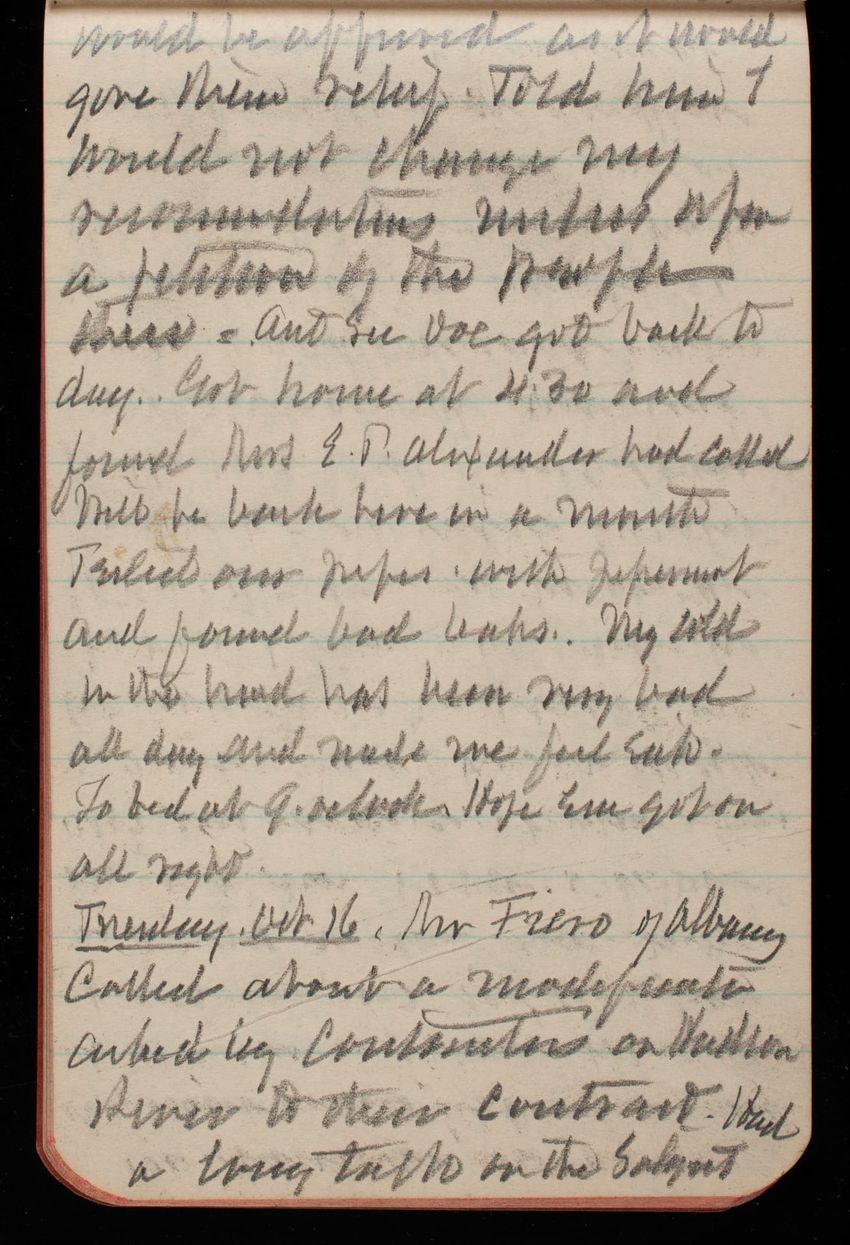 would be approved as it would
give them relief. Told him I
would not change my
recommendations unless upon
a petition of the People
there = Aunt Sue Doc got back to
day. Got home at 4.30 and
found Mrs E. P. Alexander had called
Will be back here in a month
Tested our pipes with pepermint
and found bad leaks. My cold
in the head has been very bad
all day and made me feel sick.
To bed at 9. oclock. Hope Em got on
all right.
Tuesday. Oct 16. Mr Fiero of Albany
Called about a modification
asked by Contractors on Hudson
River to their Contract. Had
a long talk on the Subject